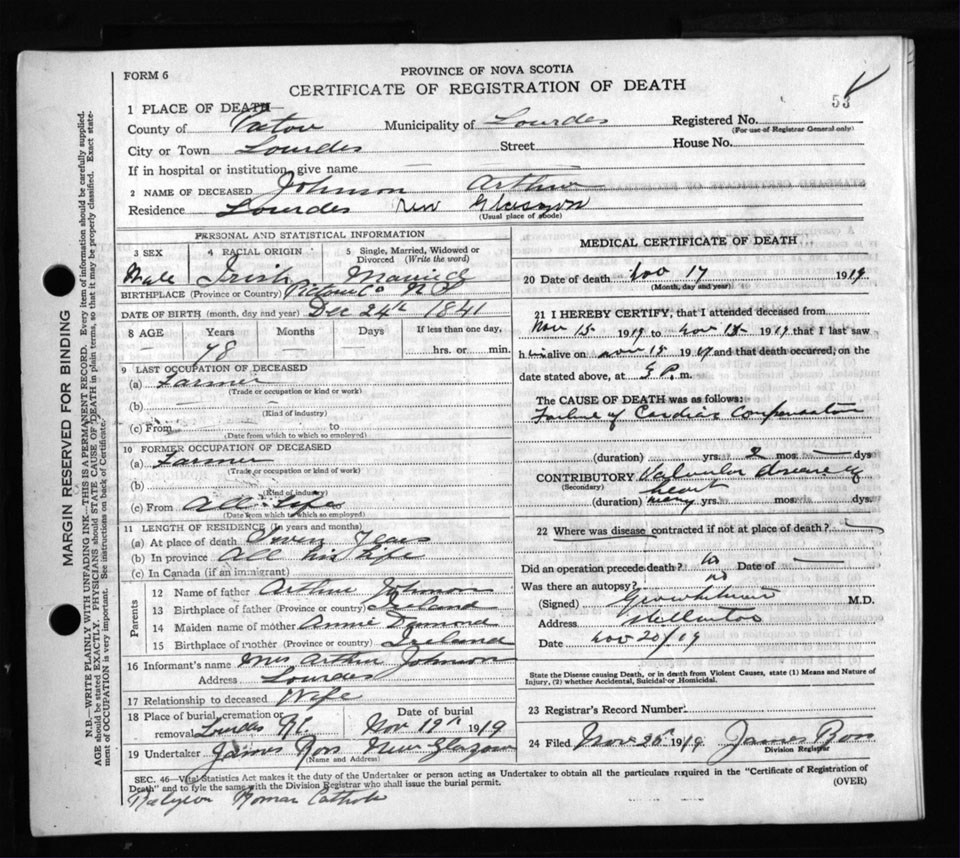 FORM 6
PROVINCE OF NOVA SCOTIA
CERTIFICATE OF REGISTRATION OF DEATH
53
1 PLACE OF DEATH
County of Pictou Municipality of Lourdes Registered No.
(For use of Registrar General only)
City or Town Lourdes Street House No.
If in hospital or institution give name
2 NAME OF DECEASED Johnson Arthur
Residence Lourdes New Glasgow
(Usual place of abode)
PERSONAL AND STATISTICAL INFORMATION
3 SEX 4 RACIAL ORIGIN 5 Single, Married, Widowed or Divorced (Write the word)
Male Irish Married
BIRTHPLACE (Province or Country) Pictou Co N.S
DATE OF BIRTH (month, day and year) Dec 24th 1841
8 AGE Years Months Days If less than one day,
— 78 — — hrs. or min.
9 LAST OCCUPATION OF DECEASED
(a) Farmer
(Trade or occupation or kind or work)
(b) —
(Kind of industry)
(c) From to
(Date from which to which so employed)
10 FORMER OCCUPATION OF DECEASED
(a) Farmer
(Trade or occupation or kind of work)
(b)
(Kind of industry)
(c) From All Life
(Date from which to which so employed)
11 LENGTH OF RESIDENCE (In years and months)
(a) At place of death Years
(b) In province all his life
(c) In Canada (if an immigrant)
Parents
12 Name of father Arthur Johnson
13 Birthplace of father (Province or country) Ireland
14 Maiden name of mother Annie
15 Birthplace of mother (Province or country) Ireland
16 Informant's name Mrs Arthur Johnson
Address Lourdes
17 Relationship to deceased Wife
18 Place of burial, cremation or removal Date of burial
Lourdes R.C. Nov 19th 1919
19 Undertaker James Ross New Glasgow
(Name and Address)
MEDICAL CERTIFICATE OF DEATH
20 Date of death Nov 17 1919
(Month, day and year)
21 I HEREBY CERTIFY, that I attended deceased from
Nov 15 1919 to Nov 18 1919 that I last saw
him alive on Nov 18 1919 and that death occurred, on the
date stated above, at P. m.
The CAUSE OF DEATH was as follows:
Failure of Cardiac Compensation
(duration) yrs. 2 mos. — dys
CONTRIBUTORY Valvular disease of
(Secondary) heart
(duration) many yrs. mos. dys.
22 Where was disease contracted if not at place of death? —
Did an operation precede death? No Date of —
Was there an autopsy? no
(Signed) M.D.
Address Stellarton
Date Nov 20/19
State the Disease causing Death, or in death from Violent Causes, state (1) Means and Nature of
Injury, (2) whether Accidental, Suicidal or Homicidal.
23 Registrar's Record Number
24 Filed Nov 25th 1919 James Ross
Division Registrar
SEC. 46—Vital Statistics Act makes it the duty of the Undertaker or person acting as Undertaker to obtain all the particulars required in the "Certificate of Registration of
Death" and to fyle the same with the Division Registrar who shall issue the burial permit. (OVER)
Religion Roman Catholic
MARGIN RESERVED FOR BINDING
N.B.—WRITE PLAINLY WITH UNFADING INK—THIS IS A PERMANENT RECORD. Every item of information should be carefully supplied.
AGE should be stated EXACTLY. PHYSICIANS should STATE CAUSE OF DEATH in plain terms, so that it may be properly classified. Exact statement
of OCCUPATION is very important. See instructions on back of Certificate.